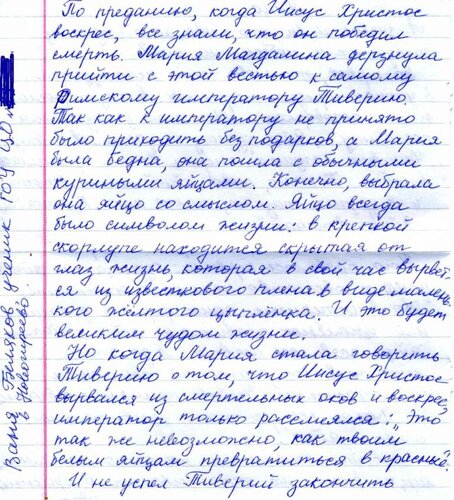 По преданию, когда Иисус Христос
воскрес, все знали, что он победил
смерть. Мария Магдалина дерзнула
прийти с этой вестью к самому
Римскому императору Тиверию.
Так как к императору не принято
было приходить без подарков, а Мария
была бедна, она пошла с обычными
куриными яйцами. Конечно, выбрала
она яйцо со смыслом. Яйцо всегда
было символом жизни: в крепкой
скорлупе находится скрытая от
глаз жизнь, которая в свой час вырвет-
ся из известкового плена в виде малень
кого жёлтого цыплёнка. И это будет
великим чудом жизни.
Но когда Мария стала говорить
Тиверию о том, что Иисус Христос
вырвался из смертельных оков и воскрес,
император только рассмеялся: „Это
так же невозможно, как твоим
белым яйцам превратиться в красные".
И не успел Тиверий закончить
Ваня ученик ГОУ ЦО
в Новогиреево.